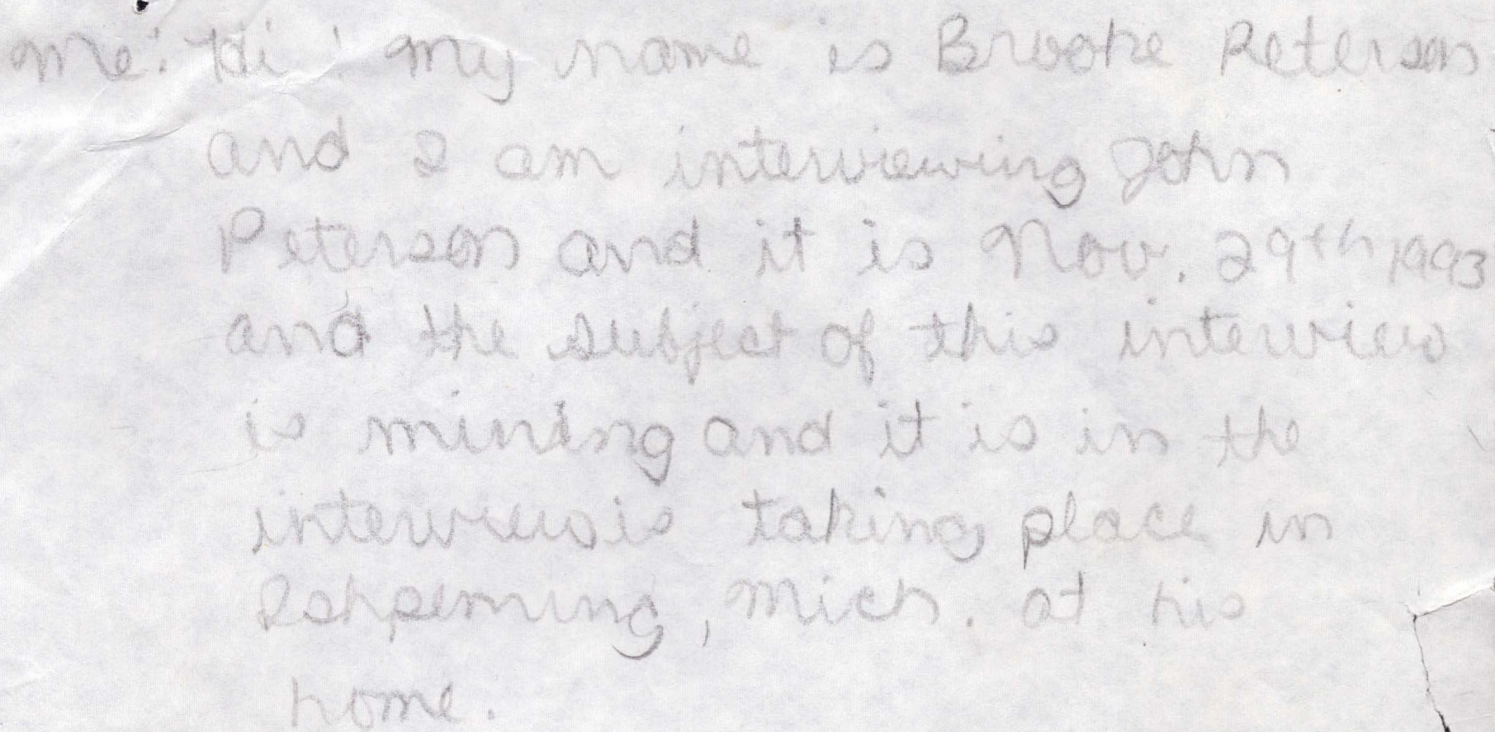 Me: Hi! My name is Brooke Peterson
and I am interviewing John
Peterson and it is Nov. 29th 1993
and the subject of this interview
is mining and it is in the
interview is taking place in
Ishpeming, Mich. at his
home.